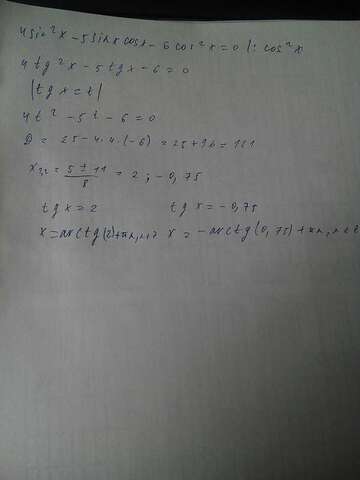 4sin²x - 5sinx cosx - 6cos²x = 0 |: cos²x
4tg²x - 5tgx - 6 = 0
|tgx = t|
4t² - 5t - 6 = 0
D = 25 - 4·4·(-6) = 25 + 96 = 121
x₁,₂ = (5 ± 11)/8 = 2 ; -0,75
tgx = 2 tgx = -0,75
x = arctg(2) + πn, n∈Z x = -arctg(0,75) + πn, n∈Z